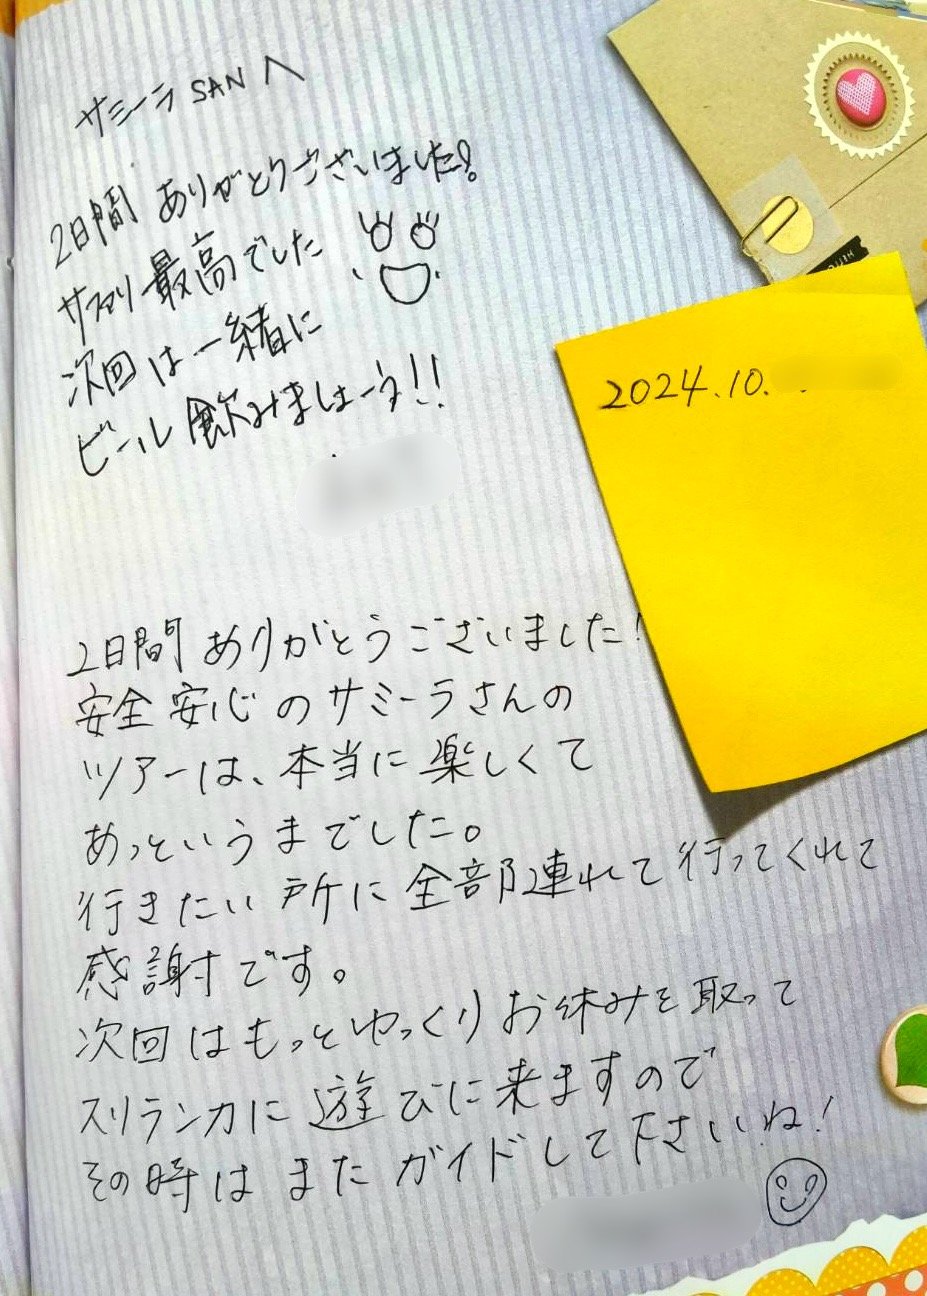 サミーラ SAN へ
2日間 ありがとうございました!
サファリ 最高でした
次回は一緒に
ビール飲みましょーう!!
2024.10.
2日間 ありがとうございました!
安全安心のサミーラさんの
ツアーは、本当に楽しくて
あっというまでした。
行きたい所に全部連れて行ってくれて
感謝です。
次回はもっとゆっくりお休みを取って
スリランカに遊びに来ますので
その時はまたガイドして下さいね!